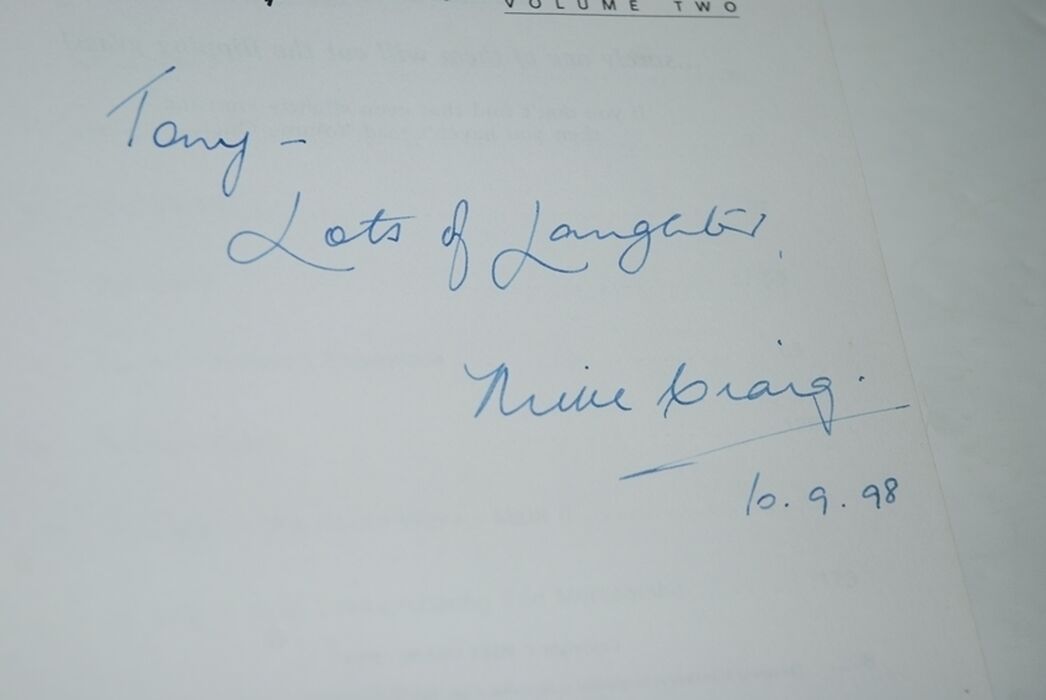 VOLUME TWO
Tony -
Lots of Laughter,
Mike Craig.
10.9.98